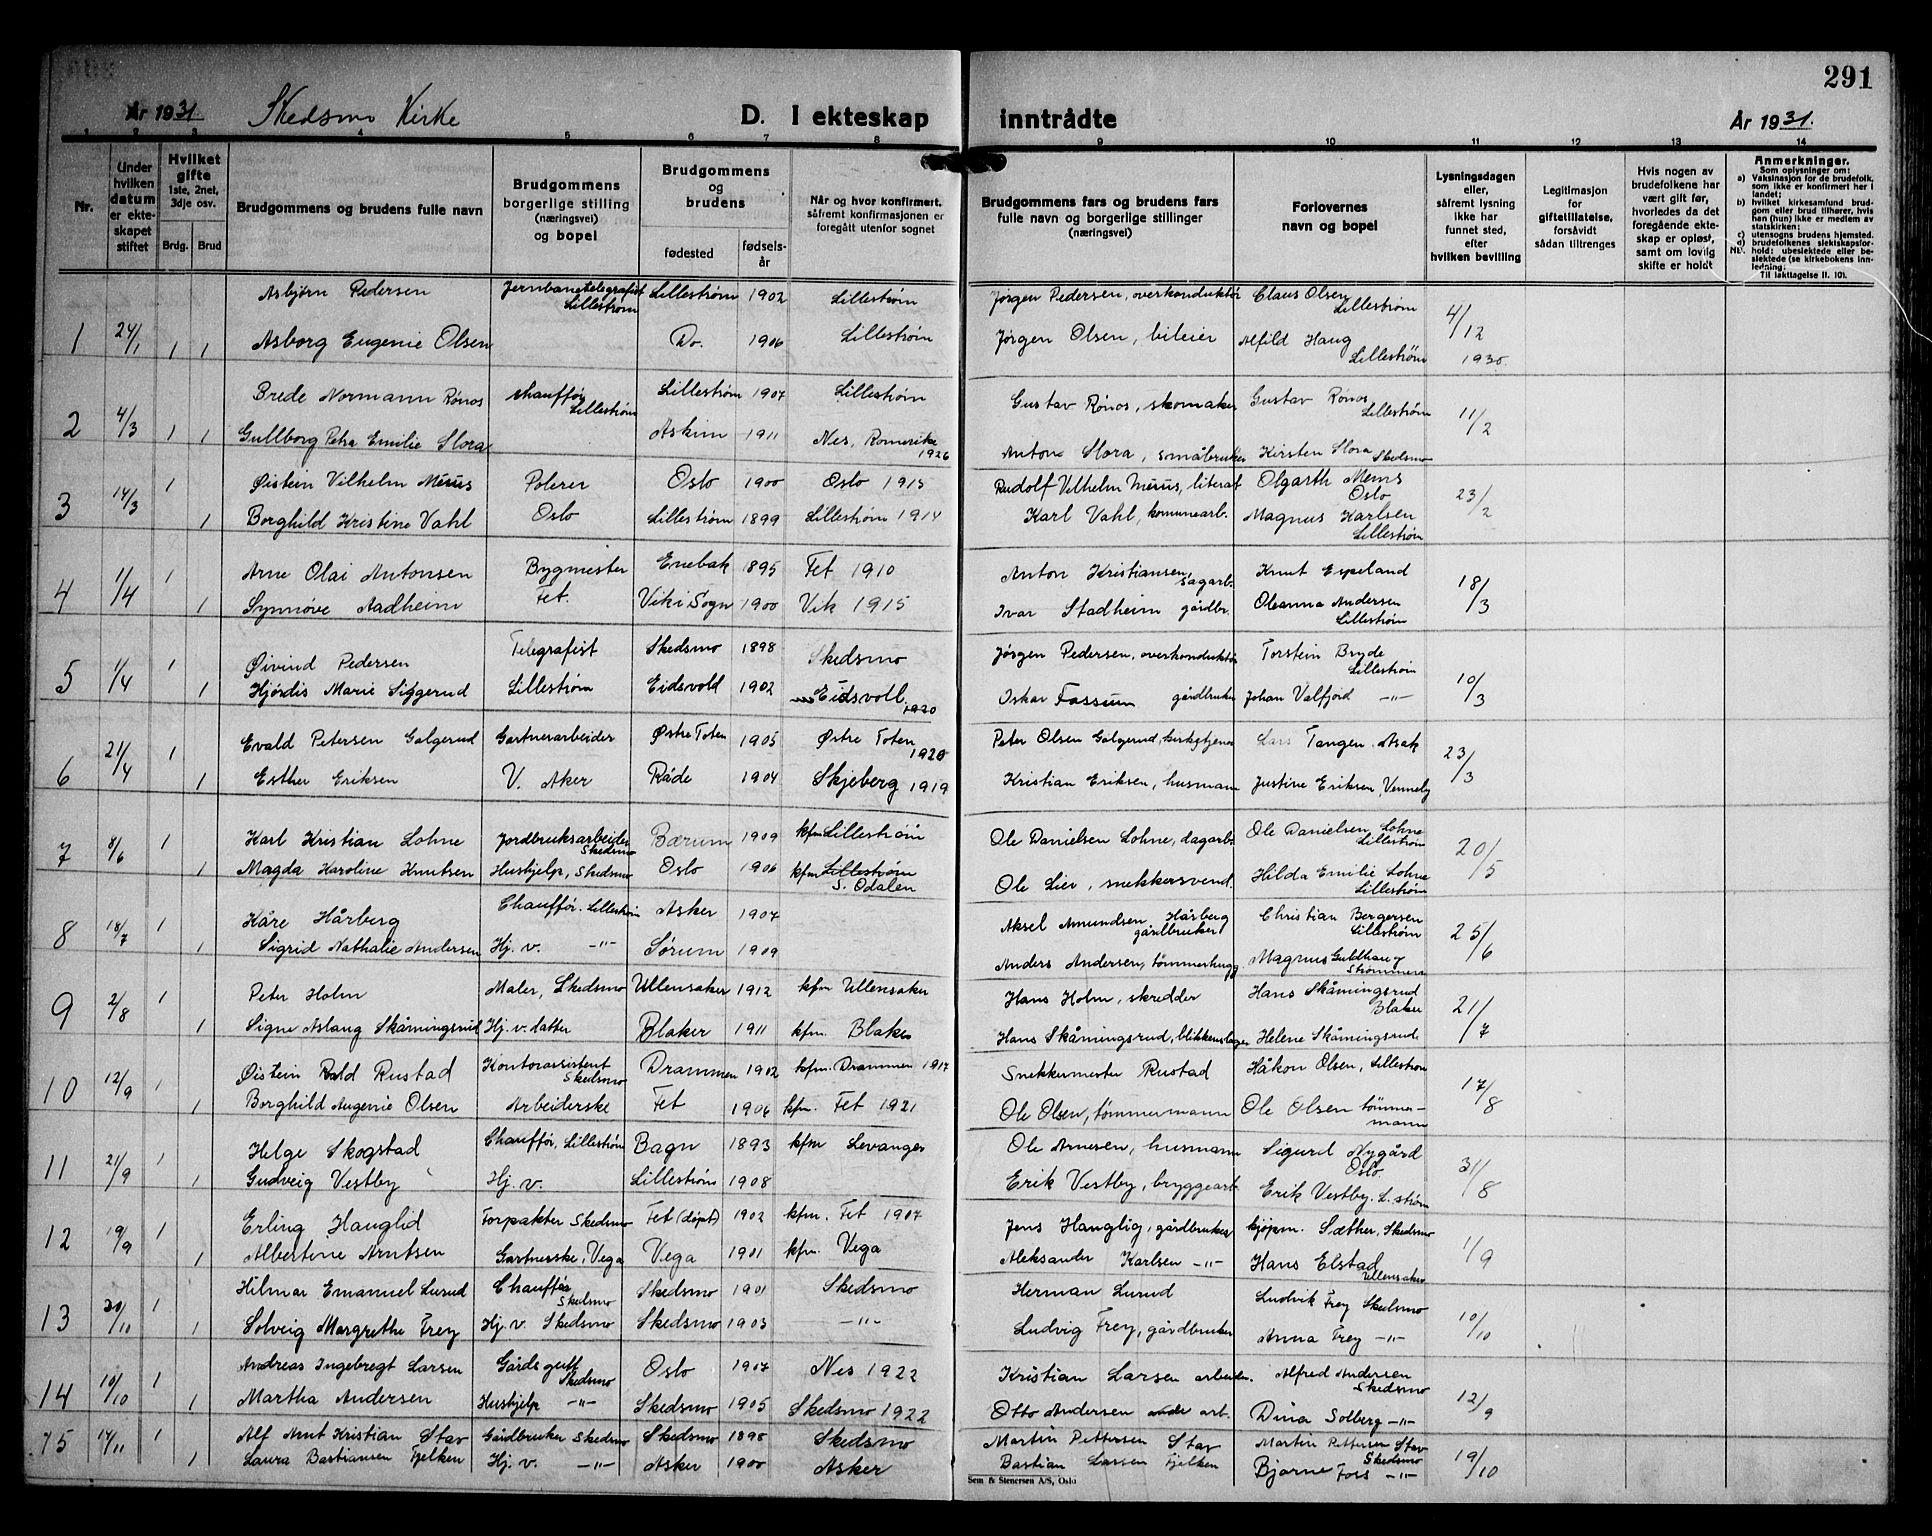 291
År 1931. Skedsmo Kirke D. I ekteskap inntrådte År 1931.
1 2 3 4 5 6 7 8 9 10 11 12 13 14
Nr.
Under hvilken datum er ekteskapet stiftet
Hvilket gifte
1ste, 2net, 3dje osv.
Brdg. Brud
Brudgommens og brudens fulle navn
Brudgommens borgerlige stilling (næringsvei) og bopel
Brudgommens og brudens
fødested
fødselsår
Når og hvor konfirmert.
såfremt konfirmasjonen er foregått utenfor sognet
Brudgommens fars og brudens fars
fulle navn og borgerlige stillinger
(næringsvei)
Forlovernes navn og bopel
Lysningsdagen eller, såfremt lysning ikke har funnet sted, efter hvilken bevilling
Legitimasjon for giftetillatelse, forsåvidt sådan tiltrenges
Hvis nogen av brudefolkene har vært gift før, hvorledes da det foregående ekteskap er opløst, samt om lovlig skifte er holdt
Anmerkninger.
Som oplysninger om:
a) Vaksinasjon for de brudefolk, som ikke er konfirmert her i landet;
b) hvilket kirkesamfund brudgom eller brud tilhører, hvis han (hun) ikke er medlem av statskirken;
c) utensogns brudens hjemsted.
d) brudefolkenes slektskapsforhold; ubeslektede eller beslektede (se kirkebokens innledning;
NB. Til iakttagelse II. 10).
1 24/1 1 1
Asbjørn Pedersen Jernbanetelegrafist Lillestrøm Lillestrøm 1902 Lillestrøm Jørgen Pedersen, overkonduktør Claus Olsen Lillestrøm 4/12 1930
Asborg Eugenie Olsen Do. 1906 Lillestrøm Jørgen Olsen, bileier Alfild Haug Lillestrøm
2 4/3 1 1
Brede Normann Rønos chauffør Lillestrøm Lillestrøm 1907 Lillestrøm Gustav Rønos, skomaker Gustav Rønos Lillestrøm 11/2
Gullborg Petra Emilie Slora Askim 1911 Nes, Romerike 1926 Anton Slora, småbruker Kirsten Slora Skedsmo
3 14/3 1 1
Øistein Vilhelm Polerer Oslo 1900 Oslo 1915 Rudolf Vilhelm literat Olgarth Oslo 23/2
Borghild Kristine Vahl Oslo Lillestrøm 1899 Lillestrøm 1914 Karl Vahl, kommunearb. Magnus Karlsen Lillestrøm
4 1/4 1 1
Arne Olai Antonsen Bygmester Enebak 1895 Fet 1910 Anton Kristiansen, sagarb. Knut Espeland 18/3
Synnøve Fet. Vik i Sogn 1900 Vik 1915 Ivar Stadheim gårdbr. Oleanna Andersen Lillestrøm
5 1/4 1 1
Øivind Pedersen Telegrafist Skedsmo 1898 Skedsmo Jørgen Pedersen, overkonduktør Torstein Bryde Lillestrøm 10/3
Hjørdis Marie Siggerud Lillestrøm Eidsvold 1902 Eidsvoll 1920 Oskar Fossum gårdbruker Johan Valfjord -"-
6 21/4 1 1
Evald Petersen Galgerud Gartnerarbeider Østre Toten 1905 Østre Toten 1920 Peter Olsen Galgerud, kirketjener Lars Tangen, Asak 23/3
Esther Eriksen V. Aker Råde 1904 Skjeberg 1919 Kristian Eriksen, husmann Justine Eriksen, Venneby
7 8/6 1 1
Karl Kristian Lohne Jordbruksarbeider Skedsmo Bærum 1909 kfm Lillestrøm Ole Danielsen Lohne, dagarb. Ole Danielsen Lohne Lillestrøm 20/5
Magda Karoline Knutsen Hushjelp, Skedsmo Oslo 1906 kfm Lillestrøm S. Odalen Ole Lier, snekkersvend. Hilda Emilie Lohne Lillestrøm
8 18/7 1 1
Kåre Hårberg Chauffør. Lillestrøm Asker 1907 Aksel Amundsen Hårberg gårdbruker Christian Bergersen Lillestrøm 25/6
Sigrid Nathalie Andersen Hj. v. -"- Sørum 1909 Anders Andersen, tømmerhugg Magnus Guldhaug Strømmen
9 2/8 1 1
Peter Holm Maler, Skedsmo Ullensaker 1912 kfm Ullensaker Hans Holm, skredder Hans Skåmingsrud Blaker 21/7
Signe Aslaug Skåmingsrud Hj. v. datter Blaker 1911 kfm. Blaker Hans Skåmingsrud, blikkenslager Helene Skåmingsrud
10 12/9 1 1
Øistein Rustad Kontorassistent Skedsmo Drammen 1902 kfm. Drammen 1917 Snekkermester Rustad Håkon Olsen, Lillestrøm 17/8
Borghild Augenie Olsen Arbeiderske Fet 1906 kfm. Fet 1921 Ole Olsen, tømmermann Ole Olsen tømmermann
11 21/9 1 1
Helge Skogstad Chauffør, Lillestrøm Bagn 1893 kfm Levanger Ole Arnesen, husmann Sigurd Nygård Oslo 31/8
Gudveig Vestby Hj. v. Lillestrøm 1908 Erik Vestby, bryggearb. Erik Vestby. L.strøm
12 19/9 1 1
Erling Hauglid Forpakter Skedsmo Fet (døpt) 1902 kfm. Fet 1907 Jens Hauglig, gårdbruker kjøpm. Sæther, Skedsmo 1/9
Albertine Arntsen Gartnerske, Vega Vega 1901 kfm. Vega Aleksander Karlsen -"- Hans Elstad Ullensaker
13 20/10 1 1
Hilmar Emanuel Lurud Chauffør Skedsmo Skedsmo 1901 Skedsmo Herman Lurud Ludvik Frey Skedsmo 10/10
Solveig Margrethe Frey Hj. v. Skedsmo Skedsmo 1903 -"- Ludvig Frey, gårdbruker Anna Frey -"-
14 10/10 1 1
Andreas Ingebregt Larsen Gårdsgutt Skedsmo Oslo 1907 Nes 1922 Kristian Larsen arbeider. Alfred Andersen Skedsmo 12/9
Martha Andersen Hushjelp -"- Skedsmo 1905 Skedsmo 1922 Otto Andersen arb. Dina Solberg -"-
15 14/11 1 1
Alf Arnt Kristian Stav Gårdbruker Skedsmo Skedsmo 1898 Skedsmo Martin Pettersen Stav Martin Pettersen Stav Skedsmo 19/10
Laura Bastiansen Fjelken Hj. v. -"- Asker 1900 Asker Bastian Larsen Fjelken Bjarne Foss -"-
Sem & Stenersen A/S, Oslo